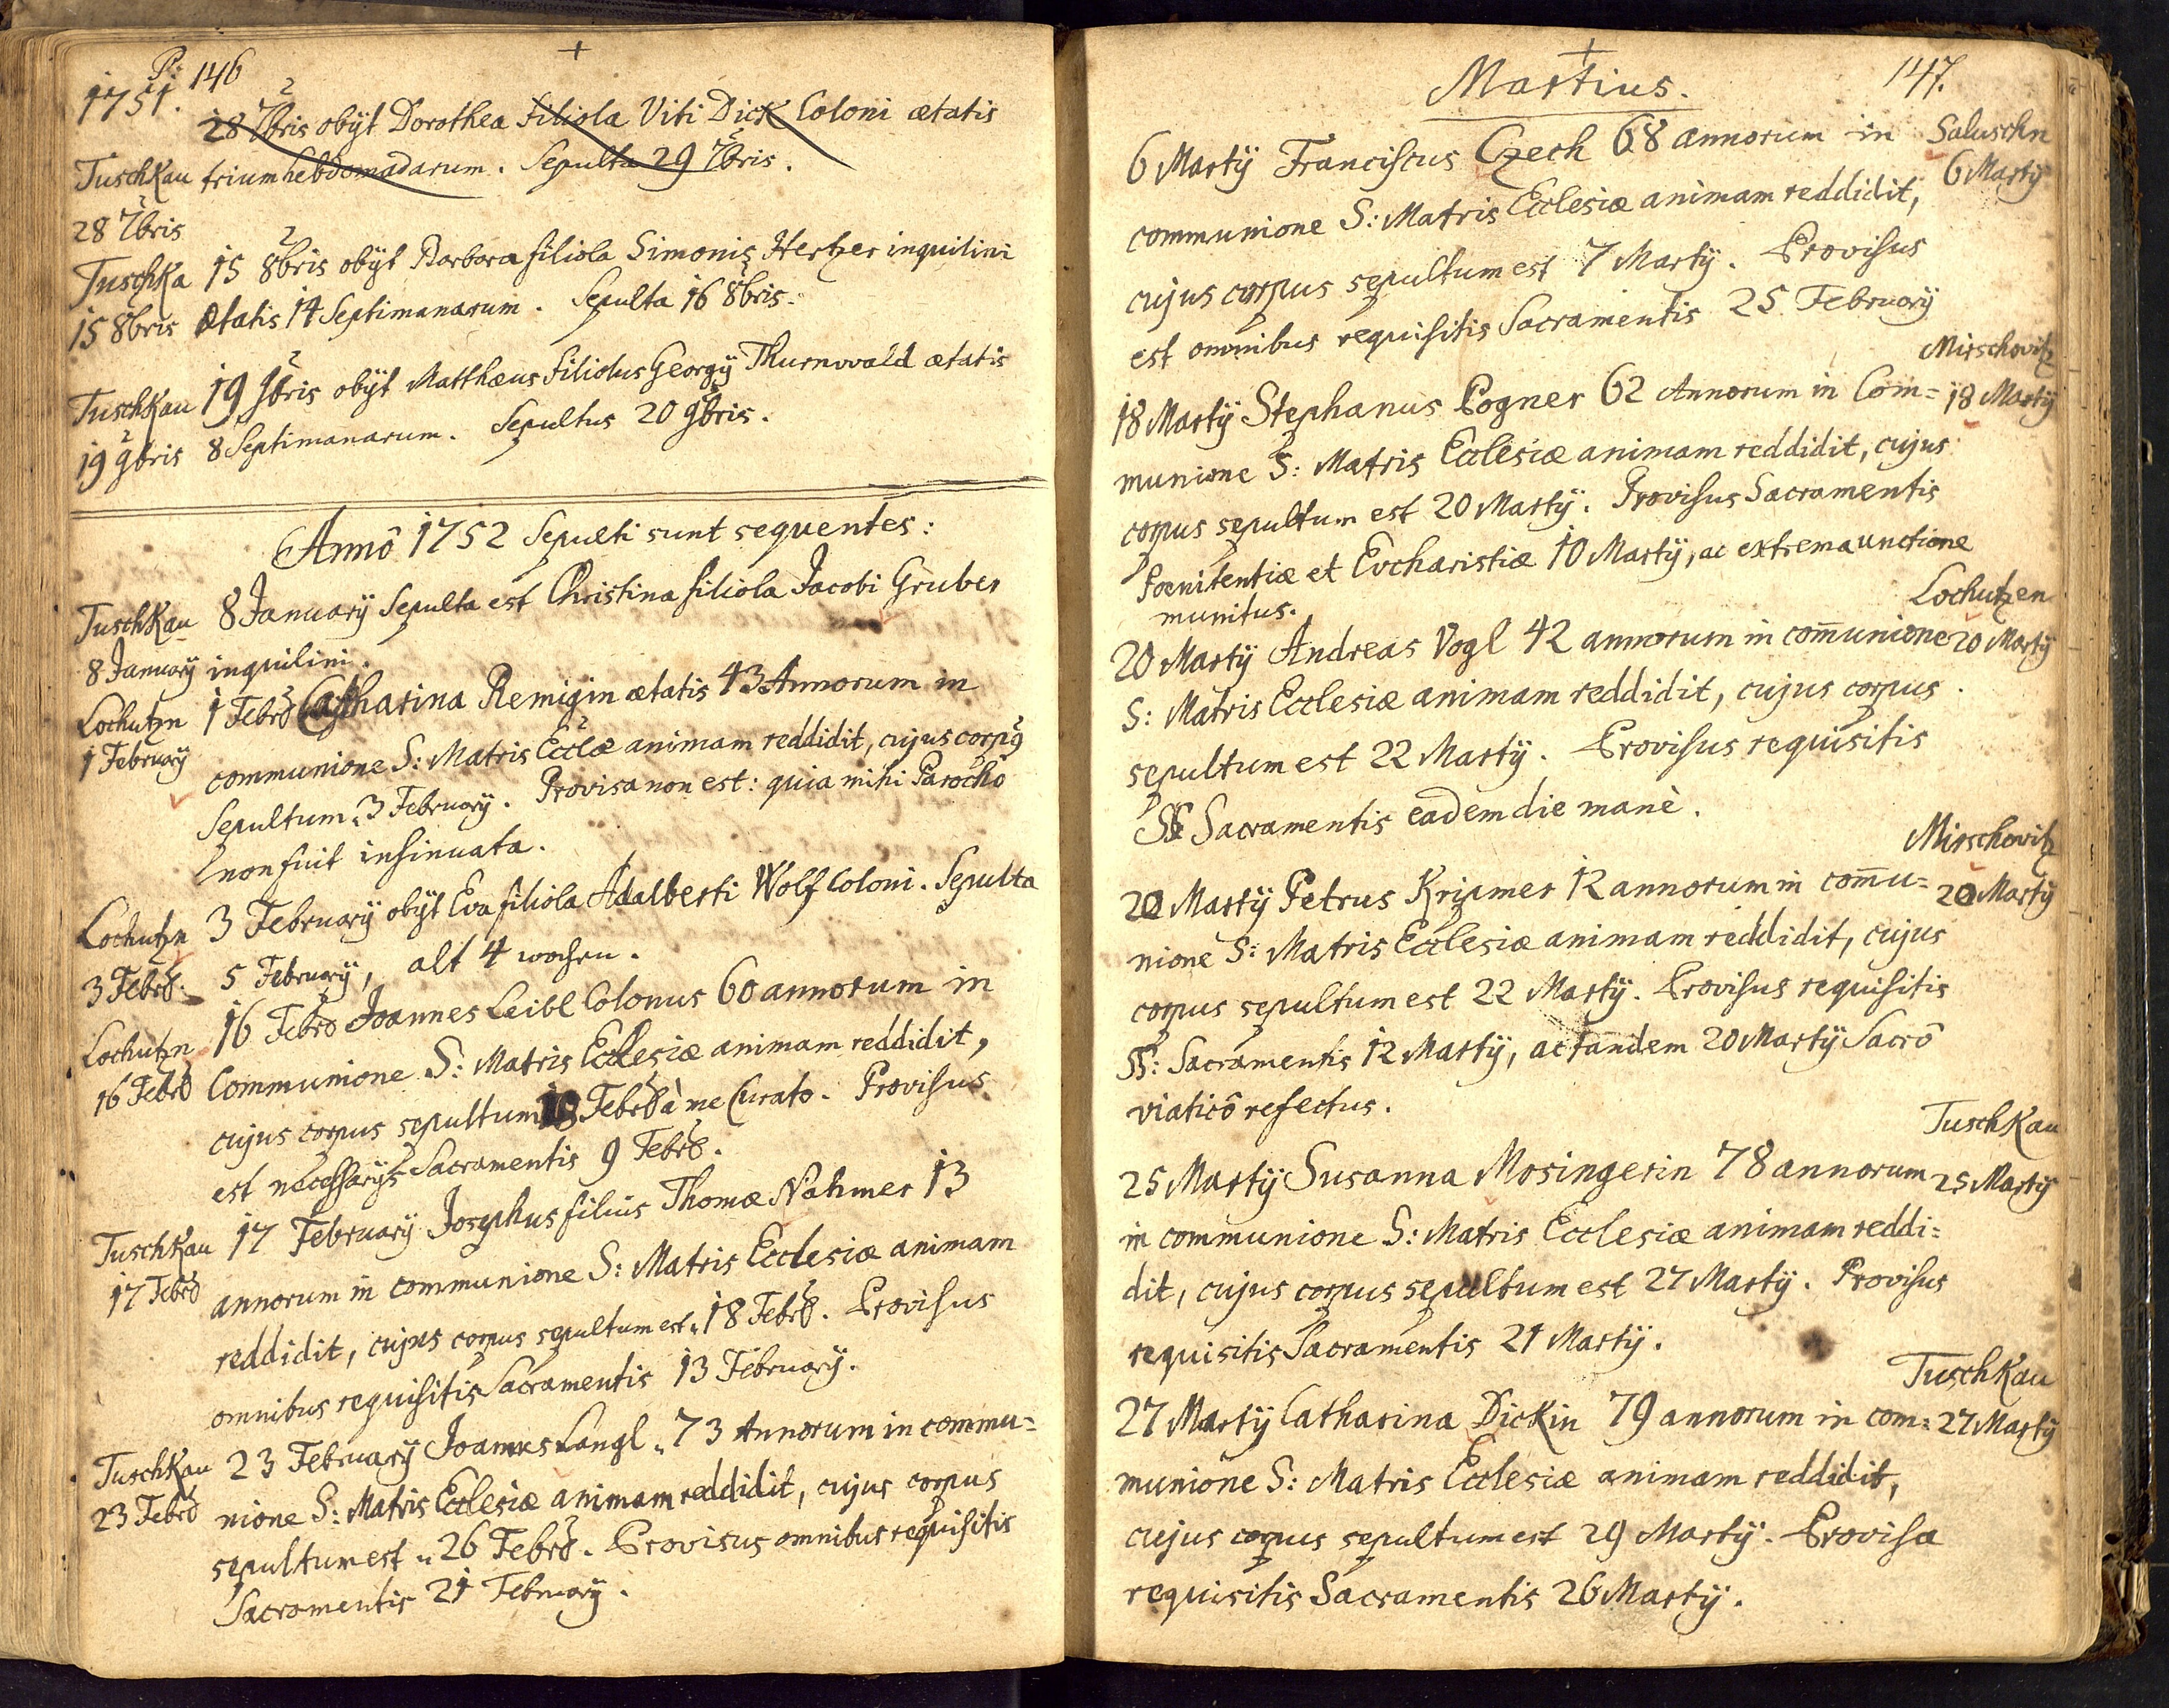 P: 146
+
1751.
28 7bris obÿt Dorothea filiola Viti Dick Coloni ætatis
Tuschkau trium hebdomadarum. Sepulta 29 7bris.
28 7bris
Tuschka 15 8bris obÿt Barbara filiola Simonis Hertzer inquilini
15 8bris ætatis 14 Septimanarum. Sepulta 16 8bris.
Tuschkau 19 9bris obÿt Matthæus filiolus Georgÿ Thurnwald ætatis
19 9bris 8 Septimanarum. Sepultus 20 9bris.
Annô 1752 Sepulti sunt sequentes:
Tuschkau 8 Januarÿ Sepulta est Christina filiola Jacobi Gruber
8 Januarÿ inquilini.
Lochutzn 1 Febrŏ Catharina Remigin ætatis 43 Annorum in
1 Februarÿ communione S: Matris Ecclæ animam reddidit, cujus corp9
Sepultum „ 3 Februarÿ. Provisa non est: quia mihi Parocho
non fuit insinuata.
Lochutzn 3 Februarÿ obÿt Eva filiola Adalberti Wolf Coloni. Sepulta
3 Febrŏ. 5 Februarÿ, alt 4 wochen.
Lochutzn 16 Febrŏ Joannes Leibl Colonus 60 annorum in
16 Febrŏ Communione S: Matris Ecclesiæ animam reddidit,
cujus corpus sepultum 18 Febrŏ à me Curato. Provisus
est necessarÿs Sacramentis 9 Febrŏ.
Tuschkau 17 Februarÿ Josephus filius Thomæ Nahmer 13
17 Febrŏ annorum in communione S: Matris Ecclesiæ animam
reddidit, cujus corpus sepultum est „ 18 Febrŏ. Provisus
omnibus requisitis Sacramentis 13 Februarÿ.
Tuschkau 23 Februarÿ Joannes Langl „ 73 Annorum in commu=
23 Febrŏ nione S: Matris Ecclesiæ animam reddidit, cujus corpus
sepultum est „ 26 Febrŏ. Provisus omnibus requisitis
Sacramentis 21 Februarÿ.
+
Martius. 147.
6 Martÿ Franciscus Czech 68 annorum in Saluschn
communione S: Matris Ecclesiæ animam reddidit, 6 Martÿ
cujus corpus sepultum est 7 Martÿ. Provisus
est omnibus requisitis Sacramentis 25 Februarÿ
Mirschovitz
18 Martÿ Stephanus Pogner 62 Annorum in Com= 18 Martÿ
munione S: Matris Ecclesiæ animam reddidit, cujus
corpus sepultum est 20 Martÿ. Provisus Sacramentis
Poenitentiæ et Evcharistiæ 10 Martÿ, ac extrema unctione
munitus.
Lochutzen
20 Martÿ Andreas Vogl 42 annorum in com̄unione 20 Martÿ
S: Matris Ecclesiæ animam reddidit, cujus corpus
sepultum est 22 Martÿ. Provisus requisitis
SS Sacramentis eadem die manè.
Mirschovitz
20 Martÿ Petrus Kripmer 12 annorum in com̄u= 20 Martÿ
nione S: Matris Ecclesiæ animam reddidit, cujus
corpus sepultum est 22 Martÿ. Provisus requisitis
SS: Sacramentis 12 Martÿ, ac tandem 20 Martÿ Sacrô
viaticô refectus.
Tuschkau
25 Martÿ Susanna Mosingerin 78 annorum 25 Martÿ
in communione S: Matris Ecclesiæ animam reddi=
dit, cujus corpus sepultum est 27 Martÿ. Provisus
requisitis Sacramentis 21 Martÿ.
Tuschkau
27 Martÿ Catharina Dickin 79 annorum in com= 27 Martÿ
munione S: Matris Ecclesiæ animam reddidit,
cujus corpus sepultum est 29 Martÿ. Provisa
requisitis Sacramentis 26 Martÿ.